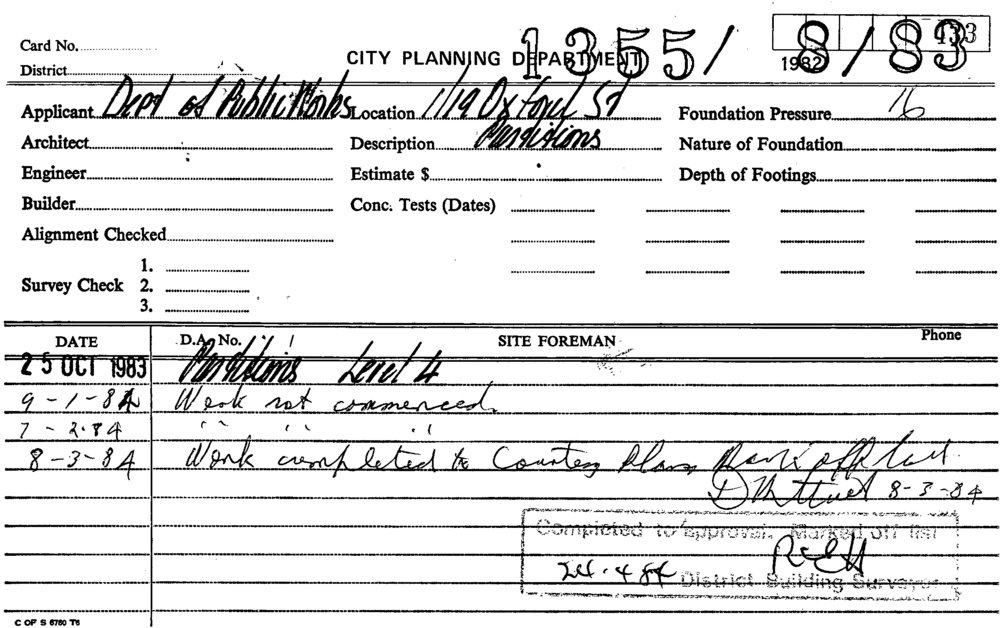 Card No.
CITY PLANNING DEPARTMENT
1355/8/83
1982
433
District
Applicant Dept of Public Works Location 1/19 Oxford St Foundation Pressure 16
Architect Description Partitions Nature of Foundation
Engineer Estimate $ Depth of Footings
Builder Conc. Tests (Dates)
Alignment Checked
1.
Survey Check 2.
3.
DATE D.A. No. SITE FOREMAN Phone
25 OCT 1983 Partitions Level 4
9-1-84 Work not commenced.
7-2-84 " " "
8-3-84 Work completed to Courtesy Plans Mark off list
8-3-84
Completed to approval. Marked off list
24.4.84 District Building Surveyor
C OF S 6760 T6